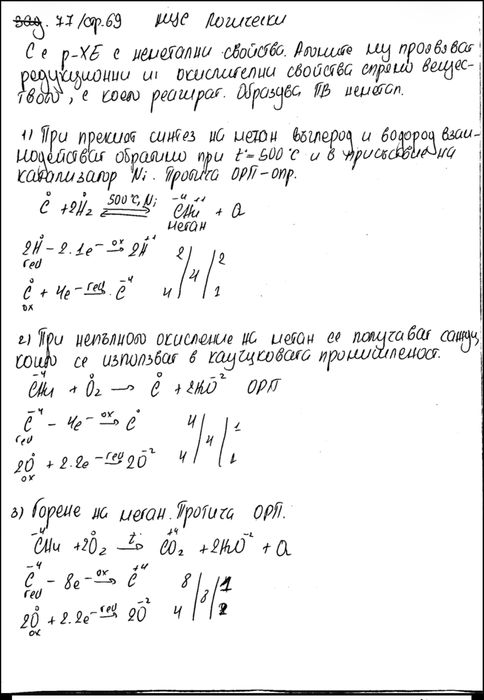 зад. 77/стр. 69 МЦС Логически
С е p-ХЕ с неметални свойства. Атомите му проявяват
редукционни и окислителни свойства спрямо вещес-
твото, с което реагират. Образува ПВ неметал.
1) При прекият синтез на метан въглерод и водород взаи-
модействат обратимо при t°=500°C и в присъствие на
катализатор Ni. Протича ОРП-опр.
C⁰ + 2H₂⁰ ⇌ 500°C, Ni C⁻⁴H₄⁺¹ + Q
метан
2H⁰ - 2.1e⁻ ox→ 2H⁺¹ 2 / 4 / 2
red
C⁰ + 4e⁻ red→ C⁻⁴ 4 / 1
ox
2) При непълното окисление на метан се получават сажди,
които се използват в каучуковата промишленост.
C⁻⁴H₄ + O₂⁰ → C⁰ + 2H₂O⁻² ОРП
C⁻⁴ - 4e⁻ ox→ C⁰ 4 / 4 / 1
red
2O⁰ + 2.2e⁻ red→ 2O⁻² 4 / 1
ox
3) Горене на метан. Протича ОРП.
C⁻⁴H₄ + 2O₂⁰ t°→ C⁺⁴O₂ + 2H₂O⁻² + Q
C⁻⁴ - 8e⁻ ox→ C⁺⁴ 8 / 8 / 1
red
2O⁰ + 2.2e⁻ red→ 2O⁻² 4 / 2
ox